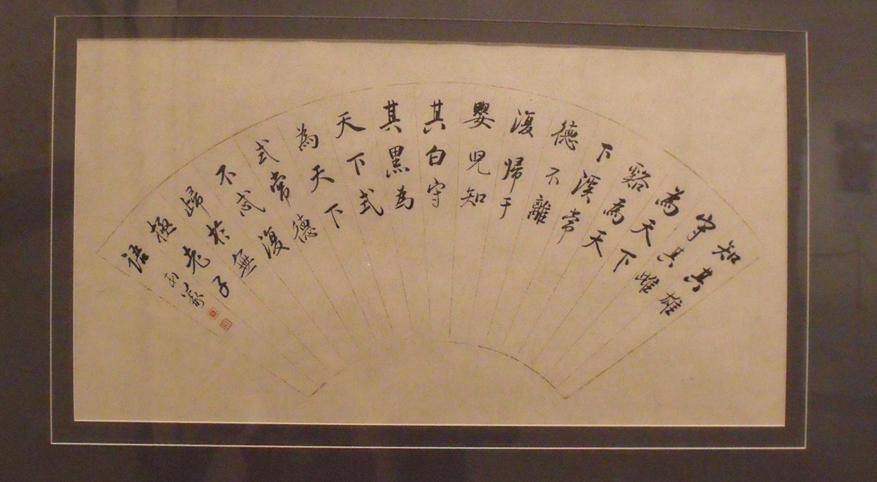 知其雄
守其雌
為天下
谿為天
下溪常
德不離
復歸于
嬰兒知
其白守
其黑為
天下式
為天下
式常德
不忒復
歸於無
極老子
語